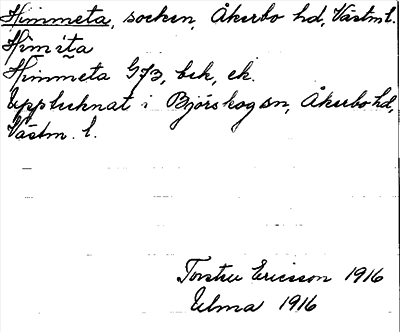 Himmeta, socken, Åkerbo hd, Västm l.
Himita
Himmeta G73, bek, ek.
Upptecknat i Björskog sn, Åkerbo hd,
Västm. l.
Torsten Ericsson 1916
Elma 1916